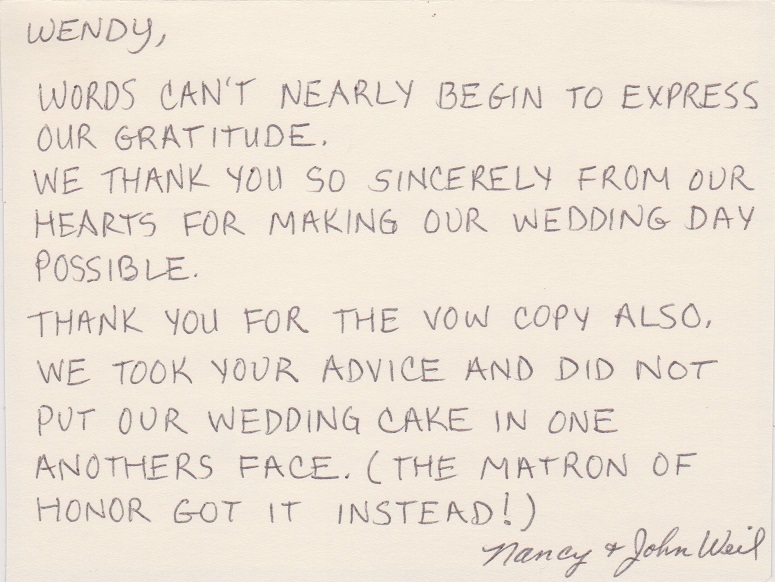 WENDY,
WORDS CAN'T NEARLY BEGIN TO EXPRESS
OUR GRATITUDE.
WE THANK YOU SO SINCERELY FROM OUR
HEARTS FOR MAKING OUR WEDDING DAY
POSSIBLE.
THANK YOU FOR THE VOW COPY ALSO.
WE TOOK YOUR ADVICE AND DID NOT
PUT OUR WEDDING CAKE IN ONE
ANOTHERS FACE. (THE MATRON OF
HONOR GOT IT INSTEAD!)
Nancy + John Weil